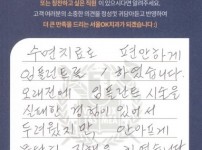 또는 칭찬하고 싶은 직원 이 있으시다면 알려주세요.
고객 여러분의 소중한 의견을 항상 귀담아듣고 반영하여
더 큰 만족을 드리는 서울OK치과가 되겠습니다 :)
수면치료로 편안하게
임플란트를 하였습니다.
오래전에 임플란트 시술을
실패한 경험이 있어
두려웠지만, 안아프게